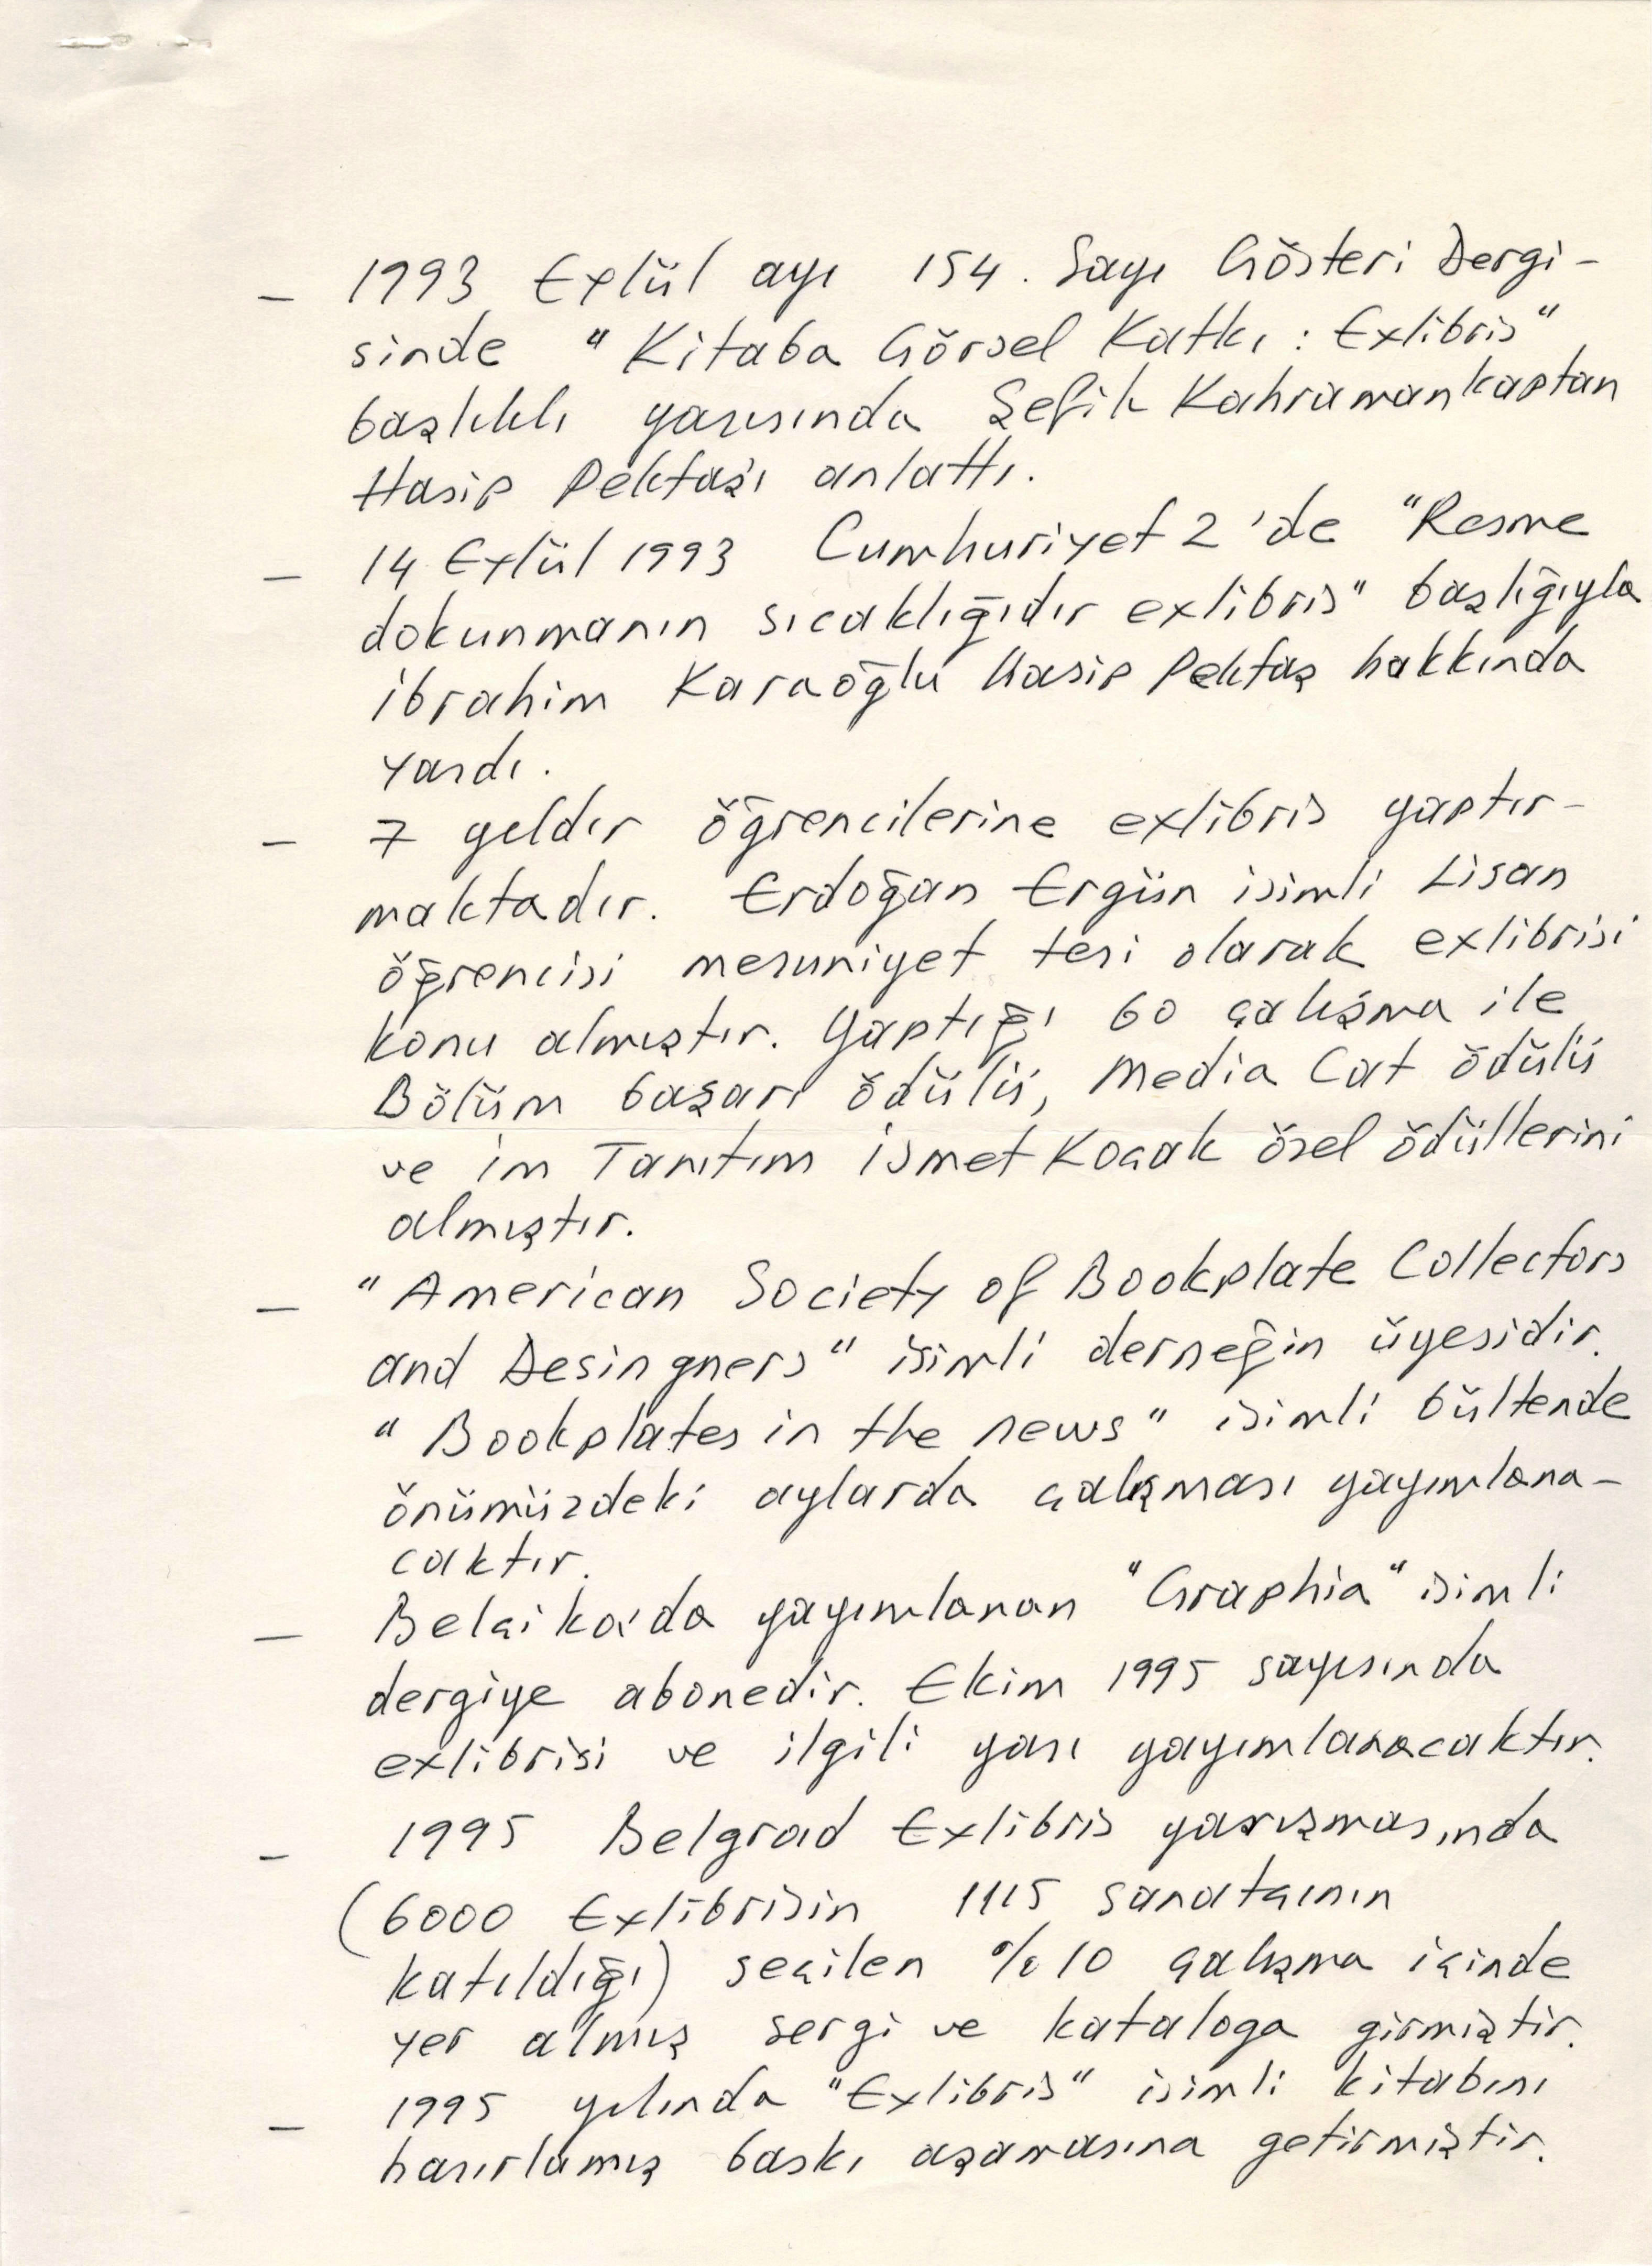 – 1993 Eylül ayı 154. Sayı Gösteri Dergi-
sinde "Kitaba Görsel Katkı: Exlibris"
başlıklı yazısında Şefik Kahramankaptan
Hasip Pektaş'ı anlattı.
– 14 Eylül 1993 Cumhuriyet 2'de "Resme
dokunmanın sıcaklığıdır exlibris" başlığıyla
İbrahim Karaoğlu Hasip Pektaş hakkında
yazdı.
– 7 yıldır öğrencilerine exlibris yaptır-
maktadır. Erdoğan Ergün isimli Lisan
öğrencisi mezuniyet tezi olarak exlibrisi
konu almıştır. Yaptığı 60 çalışma ile
Bölüm başarı ödülü, Media Cat ödülü
ve İm Tanıtım İsmet Koçak özel ödüllerini
almıştır.
– "American Society of Bookplate Collectors
and Desingners" isimli derneğin üyesidir.
"Bookplates in the news" isimli bültende
önümüzdeki aylarda çalışması yayımlana-
caktır.
– Belçika'da yayımlanan "Graphia" isimli
dergiye abonedir. Ekim 1995 sayısında
exlibrisi ve ilgili yazı yayımlanacaktır.
– 1995 Belgrad Exlibris yarışmasında
(6000 Exlibrisin 1115 sanatçının
katıldığı) seçilen %10 çalışma içinde
yer almış sergi ve kataloga girmiştir.
– 1995 yılında "Exlibris" isimli kitabını
hazırlamış baskı aşamasına getirmiştir.